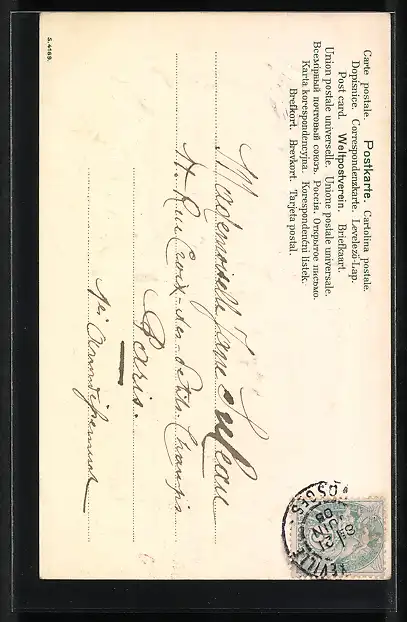 Carte postale. Postkarte. Cartolina postale.
Dopisnice. Correspondenzkarte. Levelező-Lap.
Post card. Weltpostverein. Briefkaart.
Union postale universelle. Unione postale universale.
Всемірный почтовый союзъ. Россія. Открытое письмо.
Karta korespondencyjna. Korespondenční lístek.
Brefkort. Brevkort. Tarjeta postal.
VOSGES
21
JUIN
05
Mademoiselle
Rue Croix-des-Petits-Champs
Paris.
1er Arrondissement
S. 4169.